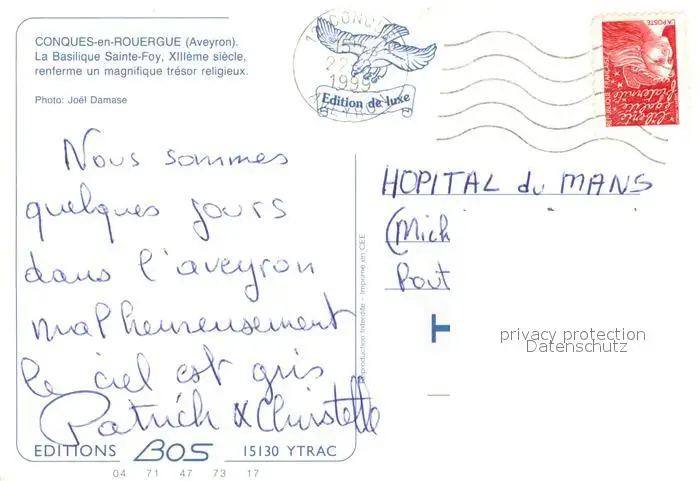 CONQUES-en-ROUERGUE (Aveyron).
La Basilique Sainte-Foy, XIIIème siècle,
renferme un magnifique trésor religieux.
Photo: Joël Damase
CONQUES
22
1999
AVEYRON
Edition de luxe
LA POSTE
Liberté
égalité
fraternité
Nous sommes
quelques jours
dans l'aveyron
malheureusement
le ciel est gris
Patrick & Christelle
HOPITAL du MANS
(Mich
Rout
Reproduction Interdite - Imprimé en CEE
privacy protection
Datenschutz
EDITIONS BOS 15130 YTRAC
04 71 47 73 17